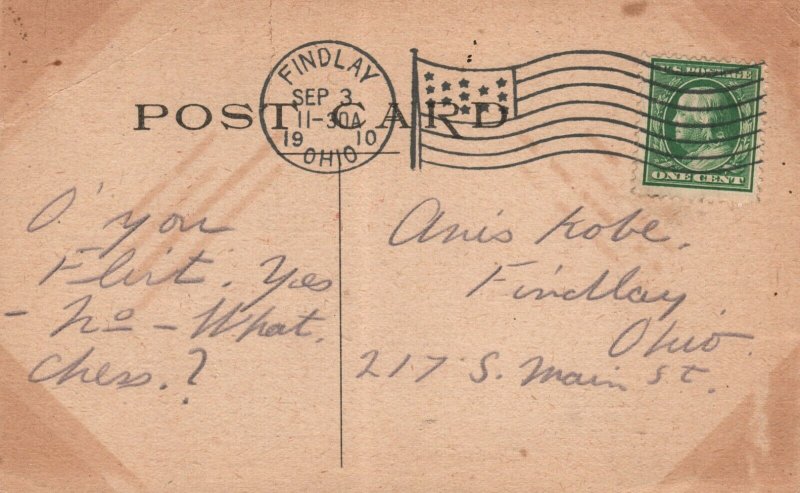 POST CARD
FINDLAY
SEP 3
11-30A
1910
OHIO
U.S. POSTAGE
ONE CENT
O' you
Flirt. Yes
- No - What.
Chess.?
Anis Kobe.
Findlay,
Ohio.
217 S. Main St.